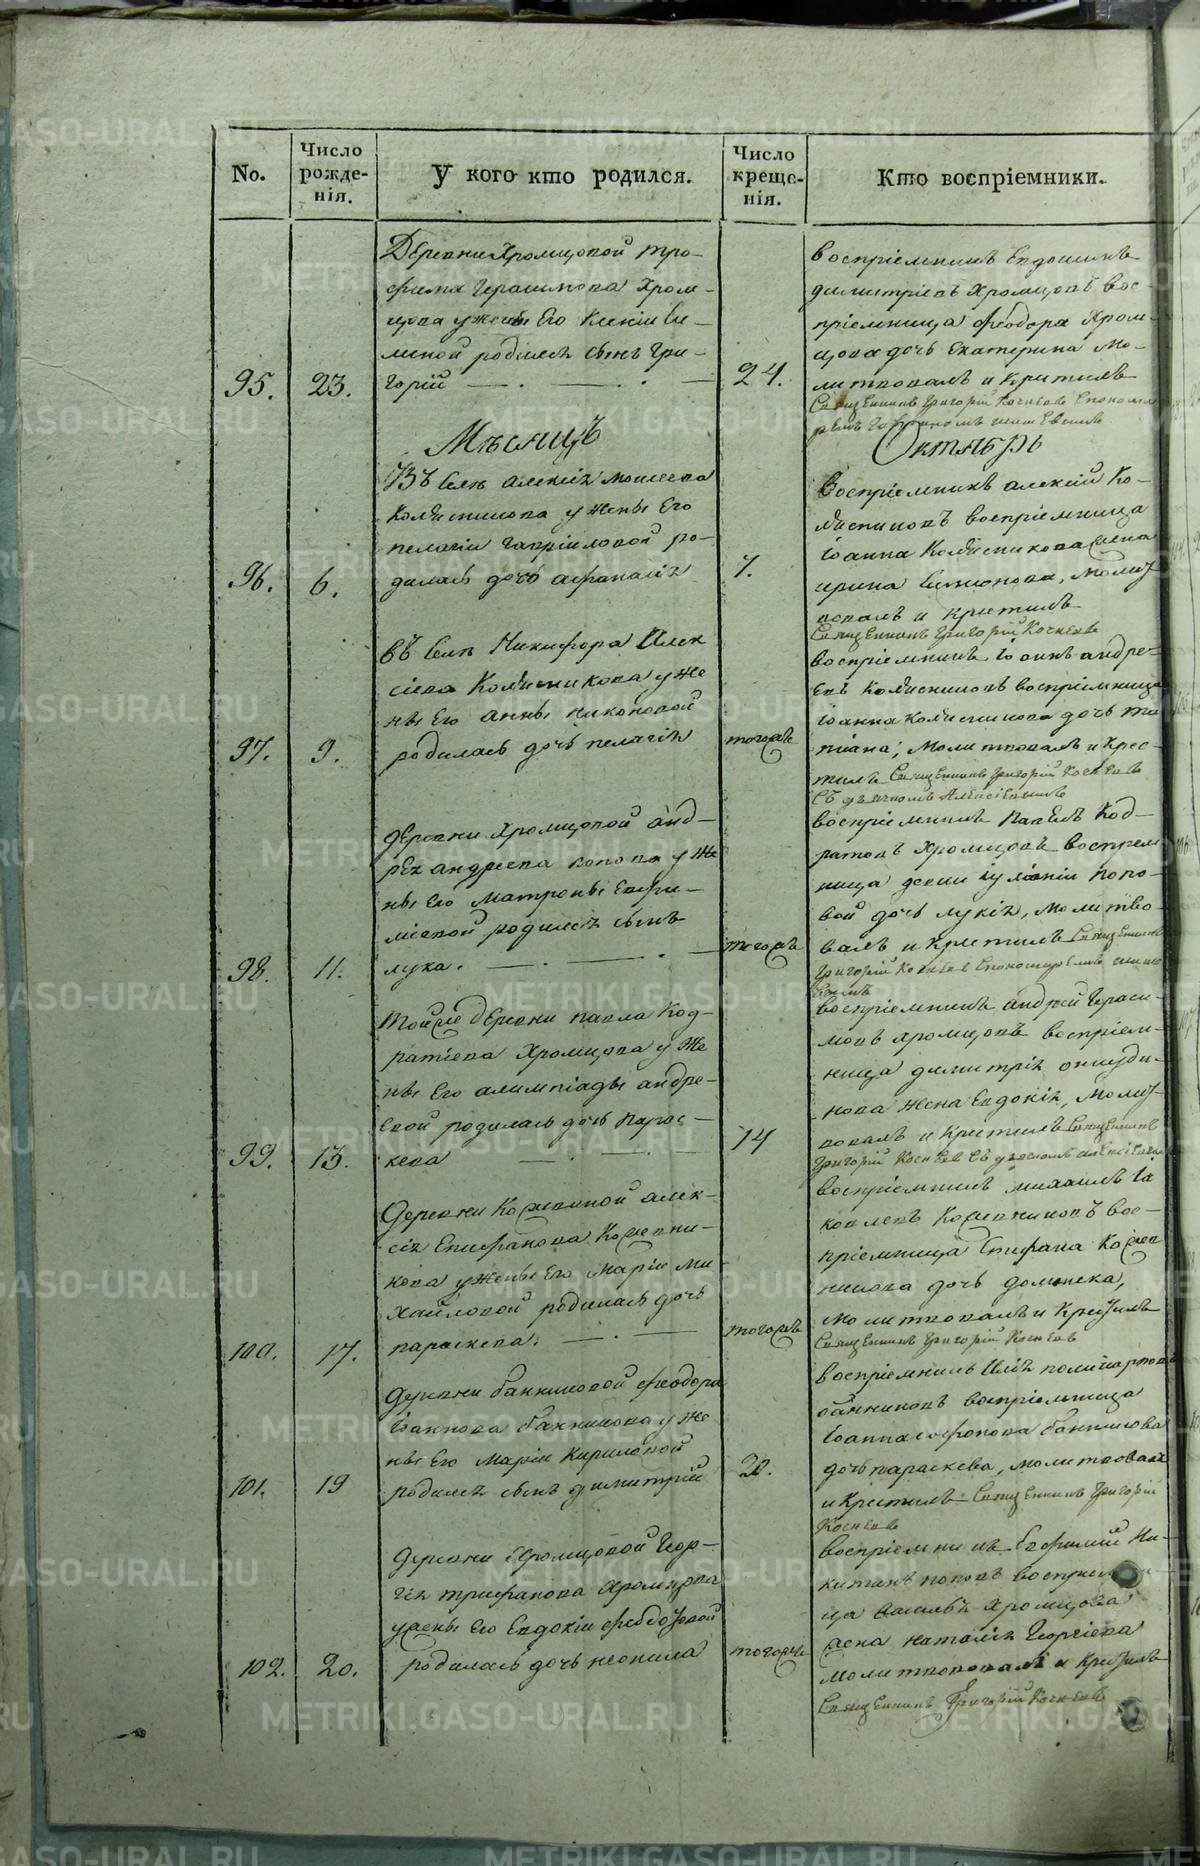 No.
Число рожде- нія.
У кого кто родился.
Число креще- нія.
Кто воспріемники.
Деревни Хромцовой Тро-
фима Герасимова Хром-
цова у жены Его Ксеніи
родился сынъ Гри-
95.
23.
горій
24.
воспріемникъ Евдокимъ
димитріевъ Хромцовъ вос-
пріемница феодора Хром-
цова дочь Екатерина мо-
литвовалъ и Крестилъ
Священникъ Григорій Кочневъ
Мѣсяцъ
Октябрь
Въ селѣ алексія моисеева
Колясникова у жены Его
пелагіи гавріиловой ро-
96.
6.
дилась дочь афанасія
7.
Воспріемникъ алексій Ко-
лясниковъ воспріемница
Іоанна Колясникова жена
ирина Симіонова, молит
вовалъ и крестилъ
Священникъ Григорій Кочневъ
въ селѣ Никифора Алек
сіева Колясникова у же
ны Его анны никоновой
97.
9.
родилась дочь пелагія
тогожъ
воспріемникъ Іоаннъ андре-
евъ Колясниковъ воспріемница
Іоанна Колясникова дочь та
тіана; молитвовалъ и Крес-
тилъ Священникъ Григорій Кочневъ
съ дьячкомъ Алексіевымъ
деревни Хромцовой анд-
рея андреева попова у же
ны Его Матроны Евфи-
міевой родился сынъ
98.
11.
лука.
тогожъ
воспріемникъ Павелъ Код-
ратовъ Хромцовъ воспріем
ница Іуліаніи попо-
вой дочь лукія, молитво-
валъ и крестилъ Священникъ
Григорій Кочневъ
Той же деревни павла Код-
ратіева Хромцова у же
ны Его алимпіады андре-
евой родилась дочь Парас-
99.
13.
кева
14
воспріемникъ андрей Гераси-
мовъ хромцовъ воспріем-
ница димитрія
жена Евдокія, молит
вовалъ и Крестилъ Священникъ
Григорій Кочневъ съ дьячкомъ
Деревни Кожевиной алек-
сія Епифанова Кожевни-
кова у жены Его Маріи Ми-
хайловой родилась дочь
100.
17.
параскева.
тогожъ
воспріемникъ михаилъ Іа
ковлевъ Кожевниковъ вос-
пріемница Епифана Кожев
никова дочь домника,
молитвовалъ и Крестилъ
Священникъ Григорій Кочневъ
Деревни банниковой феодора
Іоаннова банникова у же
ны Его Маріи Кириловой
101.
19
родился сынъ димитрій
20.
воспріемникъ Илія поликарповъ
банниковъ воспріемница
Іоанна банникова
дочь параскева, молитвовалъ
и Крестилъ Священникъ Григорій
Кочневъ
Деревни Хромцовой Геор-
гія трифанова Хромцова
у жены Его Евдокіи феодотовой
102.
20.
родилась дочь неонила
тогожъ
воспріемникъ Ефимій Ни-
китинъ поповъ воспріемни-
ца Хромцова
жена наталія Георгіева
молитвовалъ и крестилъ
Священникъ Григорій Кочневъ